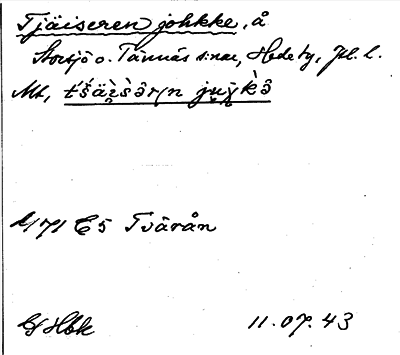 Tjäiseren johkke, å
Storsjö o. Tännäs s:nar, Hede tg, Jtl. l.
Mt,
171 C5 Tvärån
Hbk 11.07.43